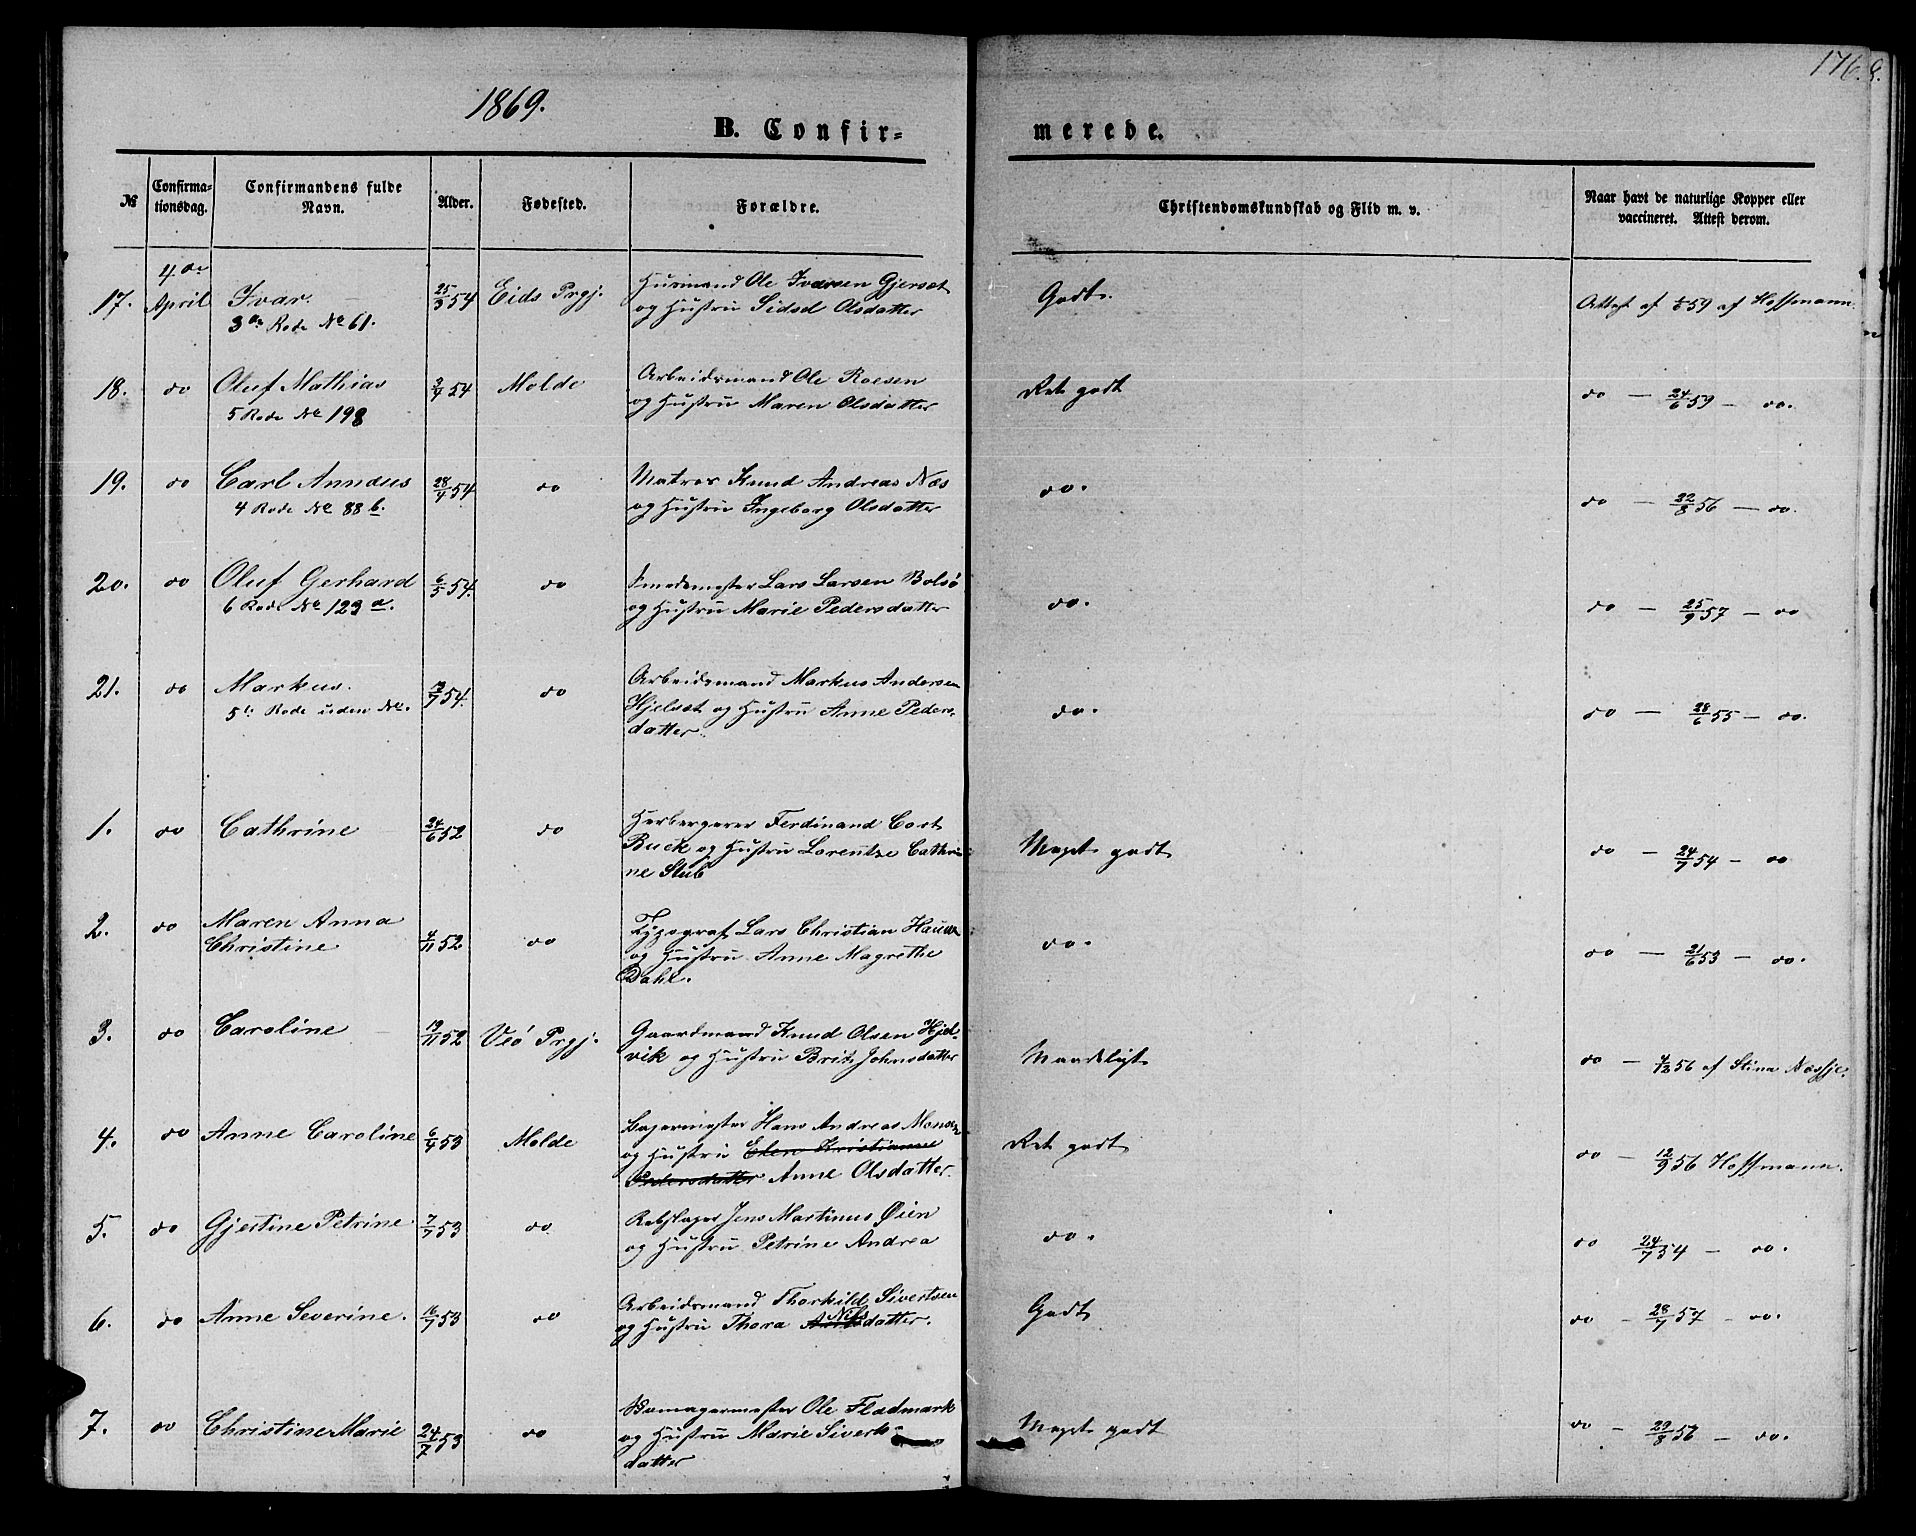 176.
1869.
B. Confir-
merede.
№
Confirma-
tionsdag.
Confirmandens fulde
Navn.
Alder.
Fødested.
Forældre.
Christendomskundskab og Flid m. v.
Naar havt de naturlige Kopper eller
vaccineret. Attest derom.
17. 4de April Ivar. 25/3 54 Eids Prgj. Huusmand Ole Iversen Gjerset
3de Rode No 61. og Hustru Sidsel Olsdatter
Godt. Attest af 59 af Hoffmann.
18. do Oluf Mathias 54 Molde Arbeidsmand Ole Roesen
5 Rode No 198 og Hustru Maren Olsdatter
Ret godt do — 24/6 59 — do.
19. do Carl Anndus 28/4 54 do Matros Knud Andreas Næs
4 Rode No 88 b. og Hustru Ingeborg Olsdatter
do. do — 22/8 56 — do.
20. do Oluf Gerhard 6/5 54. do Smedemester Lars Larsen Bolsø
6 Rode No 123 a. og Hustru Marie Pedersdatter
do. do — 25/9 57 — do
21. do Markus. 54. do Arbeidsmand Markus Andersen
5te Rode uden No. Hjelset og Hustru Anne Peders-
datter.
do. do — 28/6 55 — do.
1. do Cathrine 24/6 52 do Herbergerer Ferdinand Cort
Buck og Hustru Lorentze Cathri-
ne Stub
Meget godt do — 24/7 54 — do
2. do Maren Anna 4/11 52 do Typograf Lars Christian
Christine og Hustru Anne Magrethe
Dahl.
do. do — 21/6 53 — do.
3. do Caroline 19/11 52 Veø Prgj. Gaardmand Knud Olsen Hjel-
vik og Hustru Brit Johnsdatter
Maadeligt do — 56 af Stina Næssje.
4. do Anne Caroline 6/4 53 Molde Bagermester Hans Andreas
og Hustru Elen Kristianne
Pedersdatter Anne Olsdatter.
Ret godt do — 12/9 56 Hoffmann.
5. do Gjertine Petrine 7/7 53 do Rebslager Jens Martinus Øien
og Hustru Petrine Andrea
do. do 24/7 54 — do.
6. do Anne Severine. 16/7 53 do Arbeidsmand Thorkild Sivertsen
og Hustru Thora Nilsdatter.
Godt do — 28/7 57 — do.
7. do Christine Marie 24/7 53 do Ole Fladmark
og Hustru Marie Siverts-
datter
Meget godt do — 29/8 56 — do.